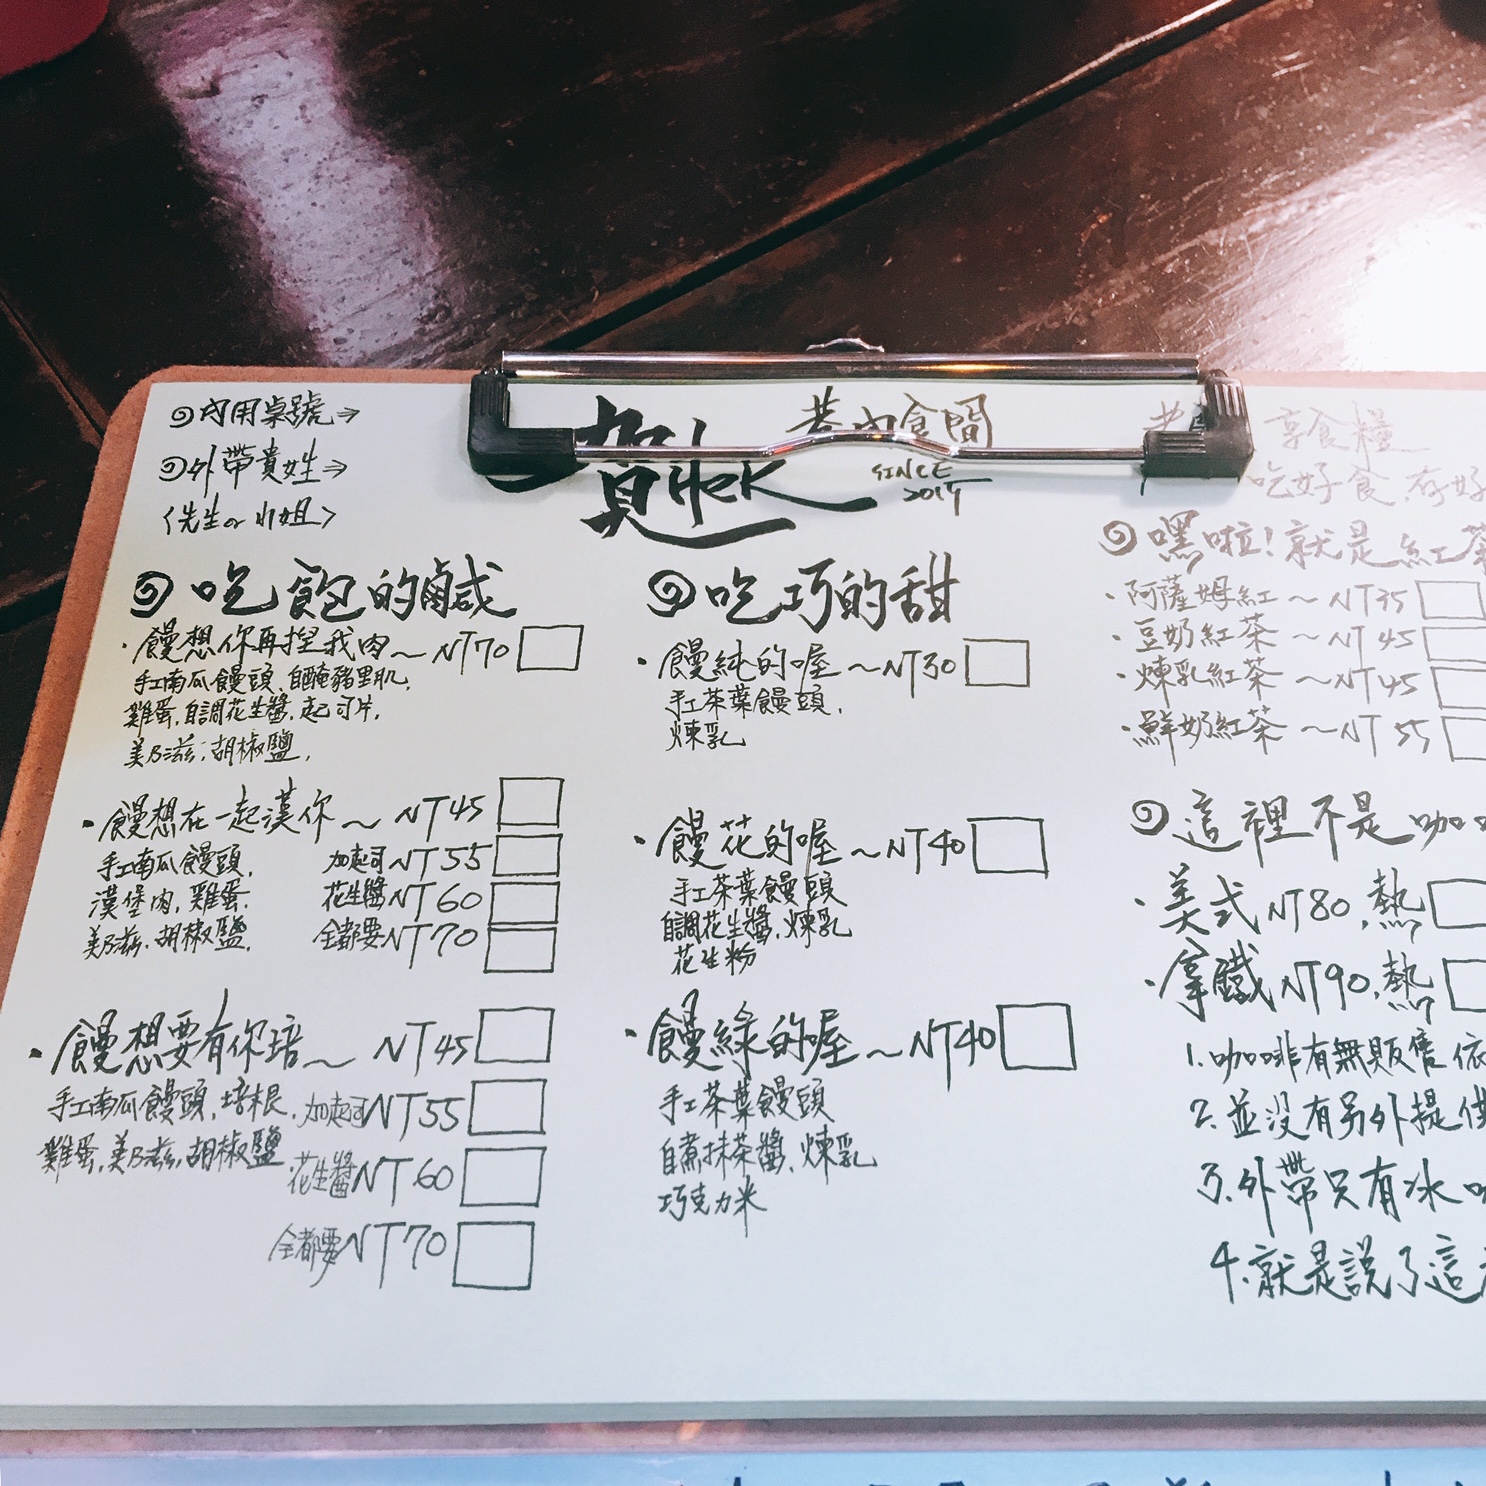 内用桌號⇒
外帶貴姓⇒
(先生or小姐)
巷内食間
SINCE
2014
享食糧
吃好食 存好
吃飽的鹹
·饅想你再捏我肉~NT70
手工南瓜饅頭,自醃豬里肌,
雞蛋,自調花生醬,起司片,
美乃滋,胡椒鹽,
·饅想在一起漢你~NT45
手工南瓜饅頭, 加起司NT55
漢堡肉,雞蛋, 花生醬NT60
美乃滋,胡椒鹽, 全都要NT70
·饅想要有你培~NT45
手工南瓜饅頭,培根, 加起司NT55
雞蛋,美乃滋,胡椒鹽 花生醬NT60
全都要NT70
吃巧的甜
·饅純的喔~NT30
手工茶葉饅頭,
煉乳
·饅花的喔~NT40
手工茶葉饅頭
自調花生醬,煉乳
花生粉
·饅綠的喔~NT40
手工茶葉饅頭
自煮抹茶醬,煉乳
巧克力米
嘿啦!就是紅茶
·阿薩姆紅~NT35
·豆奶紅茶~NT45
·煉乳紅茶~NT45
·鮮奶紅茶~NT55
這裡不是咖
·美式NT80,熱
·拿鐵NT90,熱
1.咖啡有無販售依
2.並沒有另外提供
3.外帶只有冰
4.就是說了這